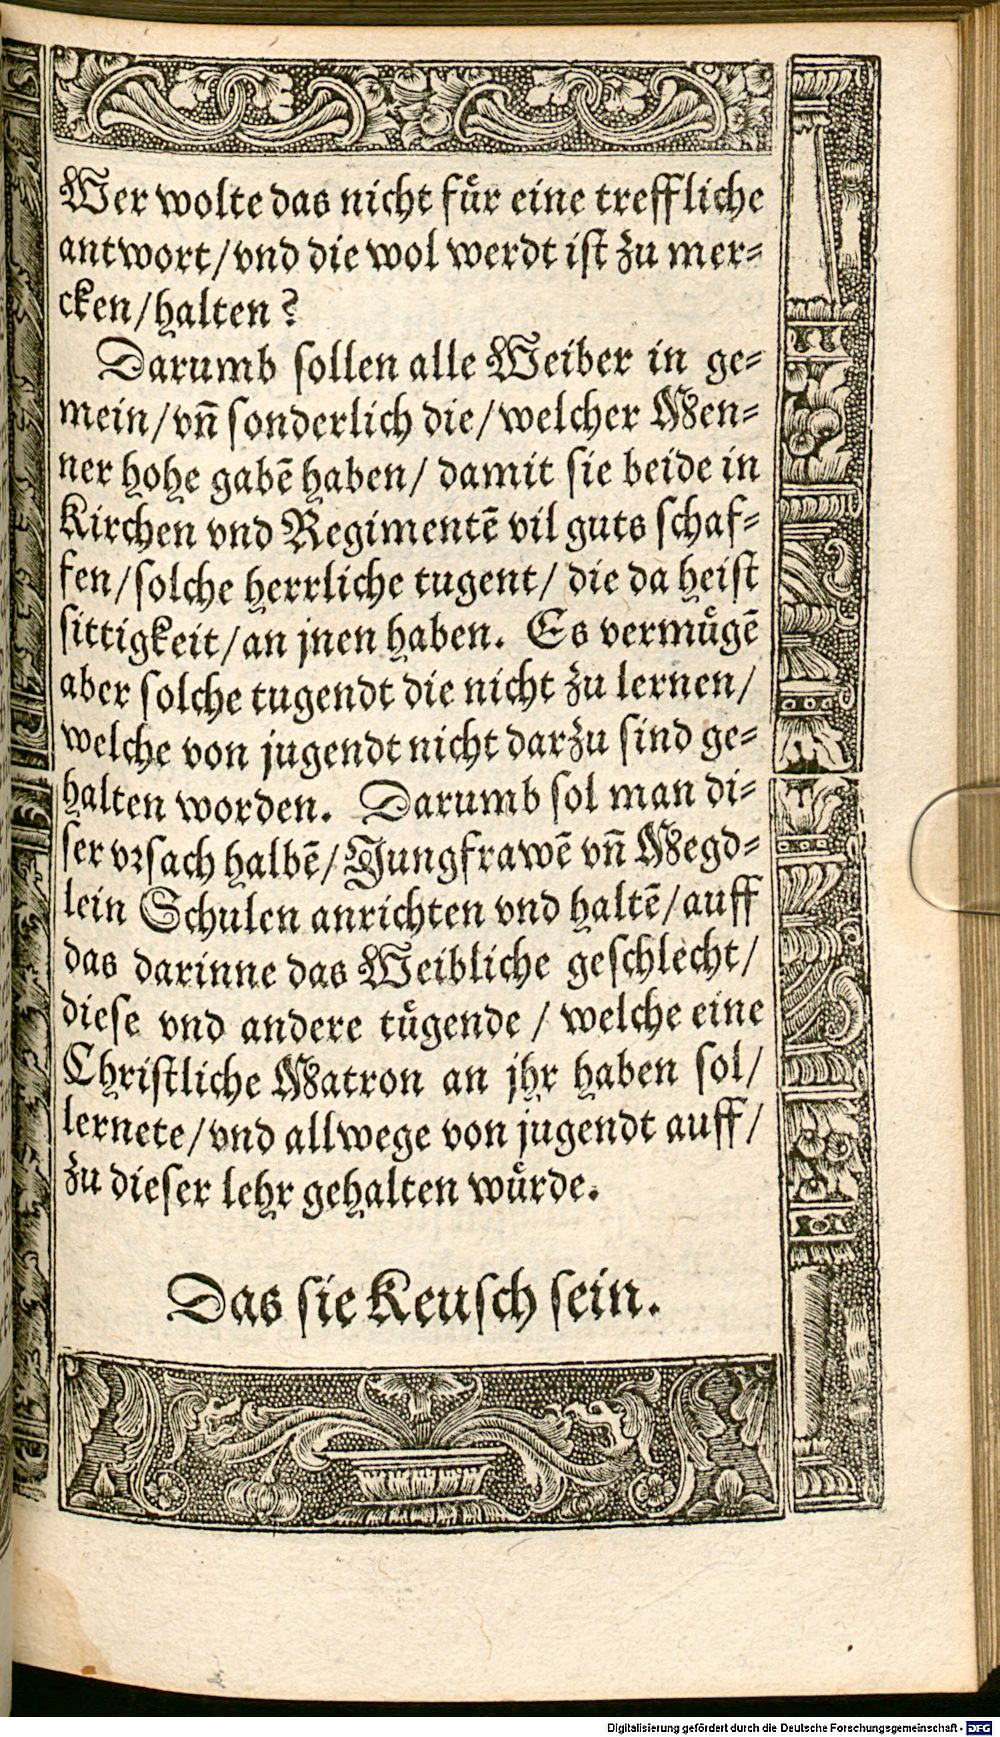 Wer wolte das nicht fuͤr eine treffliche
antwort/vnd die wol werdt ist zu mer⸗
cken/halten?
Darumb sollen alle Weiber in ge⸗
mein/vn̄ sonderlich die/welcher Men⸗
ner hohe gabē haben/ damit sie beide in
Kirchen vnd Regimentē vil guts schaf⸗
fen/solche herrliche tugent/ die da heist
sittigkeit/an jnen haben. Es vermuͤgē
aber solche tugendt die nicht zu lernen/
welche von jugendt nicht darzu sind ge⸗
halten worden. Darumb sol man di⸗
ser vrsach halbē/Jungfrawē vn̄ Megd⸗
lein Schulen anrichten vnd haltē/auff
das darinne das Weibliche geschlecht/
diese vnd andere tuͤgende / welche eine
Christliche Matron an jhr haben sol/
lernete/vnd allwege von jugendt auff/
zu dieser lehr gehalten wuͤrde.
Das sie Keusch sein.
Digitalisierung gefördert durch die Deutsche Forschungsgemeinschaft - DFG